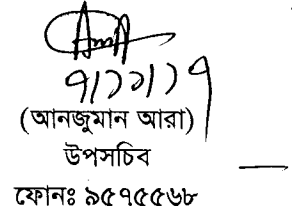 ৭/১১/১৭
(আনজুমান আরা)
উপসচিব
ফোনঃ ৯৫৭৫৫৬৮